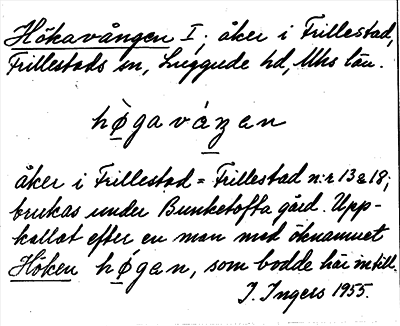 Hökavången I, åker i Frillestad,
Frillestads sn, Luggude hd, Mhs län.
hø̠gavá̠ŋan
åker i Frillestad = Frillestad n:r 13 & 18;
brukas under Bunketofta gård. Upp-
kallat efter en man med öknamnet
Höken hø̠gan, som bodde här intill.
I. Ingers 1955.